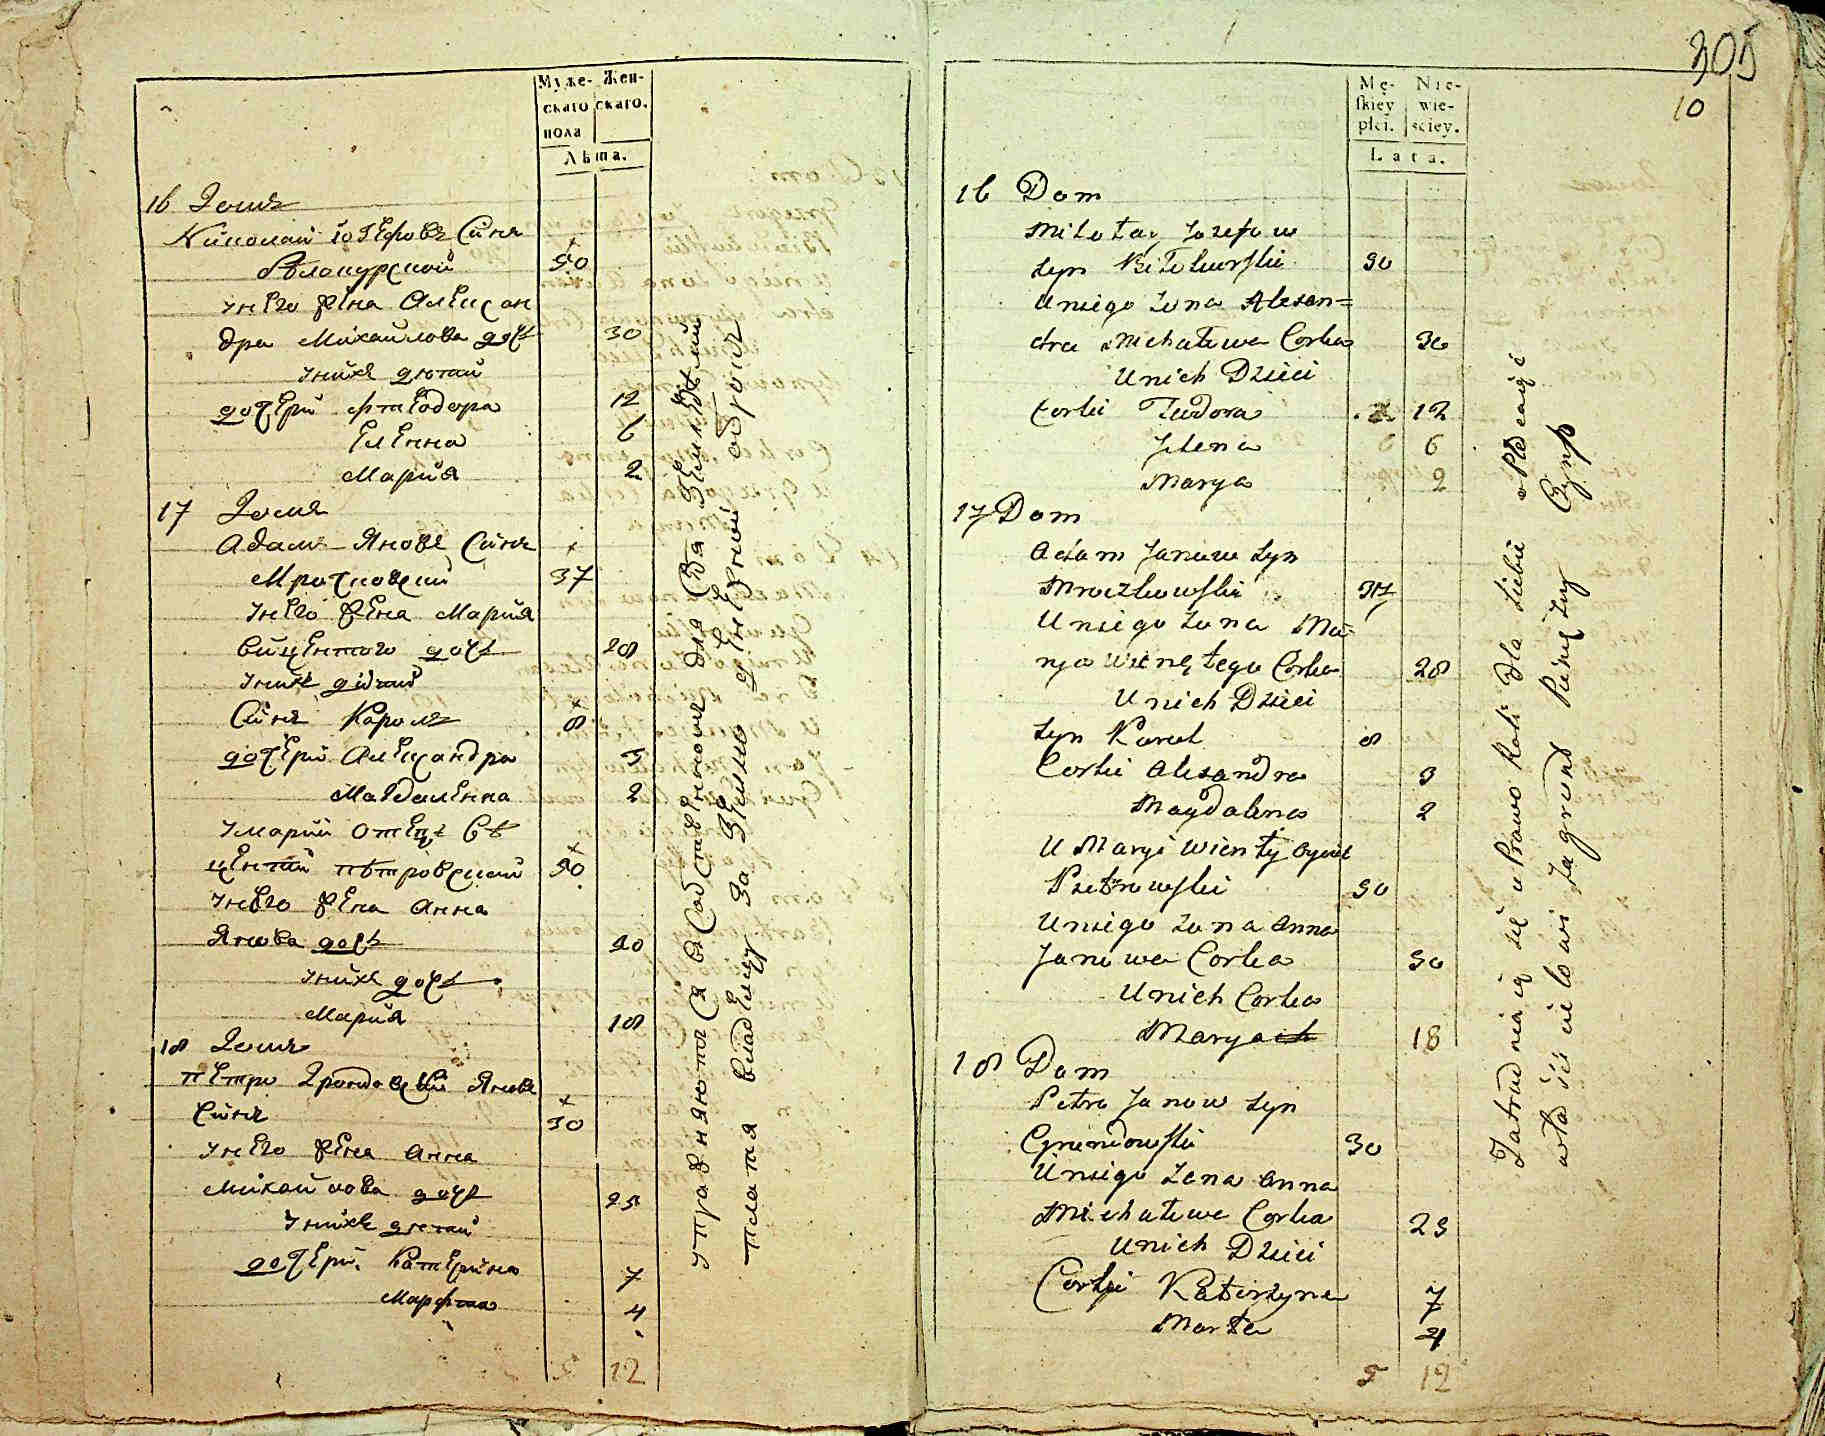 Муже- Жен-
скаго скаго.
пола
Лѣта.
16 Домъ
Николай Юзефовъ Синъ
Бѣлокурской 50
Унего жена Алексан
дра Михайлова дочь 30
Унихъ дѣтай
дочери Фтеодора 12
Еленна 6
Мария 2
17 Домъ
Адамъ Яновъ Синъ
Мрочковский 37
Унего жена Мария
Вицентого дочь 28
Унихъ дѣтай
Синъ Кароль 8
дочери Александра 3
Магдаленна 2
Умарии отецъ Ви
центий Пѣтровский 50
Унего жена Анна
Янова дочь 50
Унихъ дочь
Мария 18
18 Домъ
Петро Грондовский Яновъ
Синъ 30
Унего жена Анна
Михайлова дочь 25
Унихъ дѣтай
дочери Катерина 7
Марфта 4
5 12
Упражняются в собственномъ для себя земледѣлии
платя владелцу за землю денежной оброкъ
305
10
Mę- Nie-
skiey wie-
płci. sciey.
Lata.
16 Dom
Mikołay Jozefow
Syn Biłokurski 50
Uniego Zona Alexan=
dra Michałowa Corka 30
Unich Dzieci
Corki Teodora 12
Jelena 6
Marya 2
17 Dom
Adam Janow Syn
Mroczkowski 37
Uniego Zona Ma-
rya Wincętego Corka 28
Unich Dzieci
Syn Karol 8
Corki Alexandra 3
Magdalena 2
U Maryi Wienty Oyciec
Pietrowski 50
Uniego Zona Anna
Janowa Corka 50
Unich Corka
Marya 18
18 Dom
Petro Janow Syn
Grondowski 30
Uniego Zona Anna
Michałowa Corka 25
Unich Dzieci
Corki Katerzyna 7
Marta 4
5 12
Zatrudniaią się uPrawo Roli dla Siebie Płacąc
właścicielowi za grunt Pieniężny Czynsz